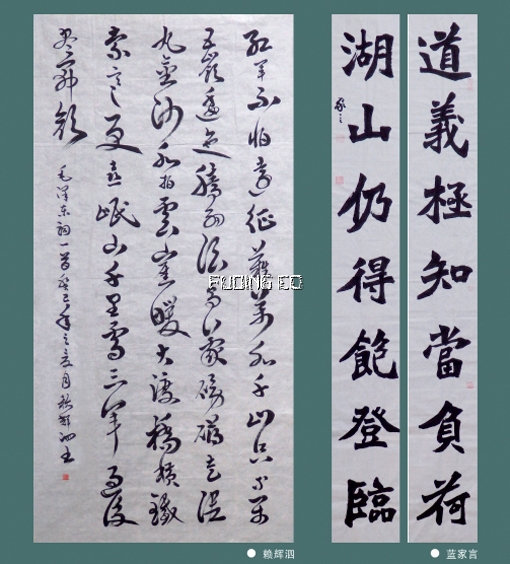 道義極知當負荷
湖山仍得飽登臨
紅軍不怕遠征難萬水千山只等閑
五嶺逶迤騰細浪烏蒙磅礴走泥
丸金沙水拍雲崖暖大渡橋橫鐵
索寒更喜岷山千里雪三軍過後
盡開顏
毛澤東詞一首癸巳年之夏月
賴輝泗
蓝家言